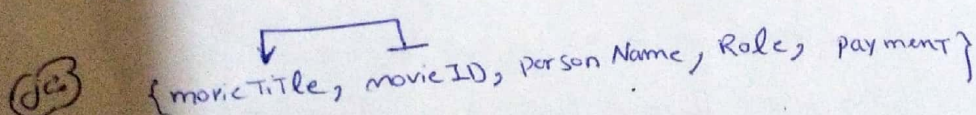 {movieTiTle, movieID, person Name, Role, payment}